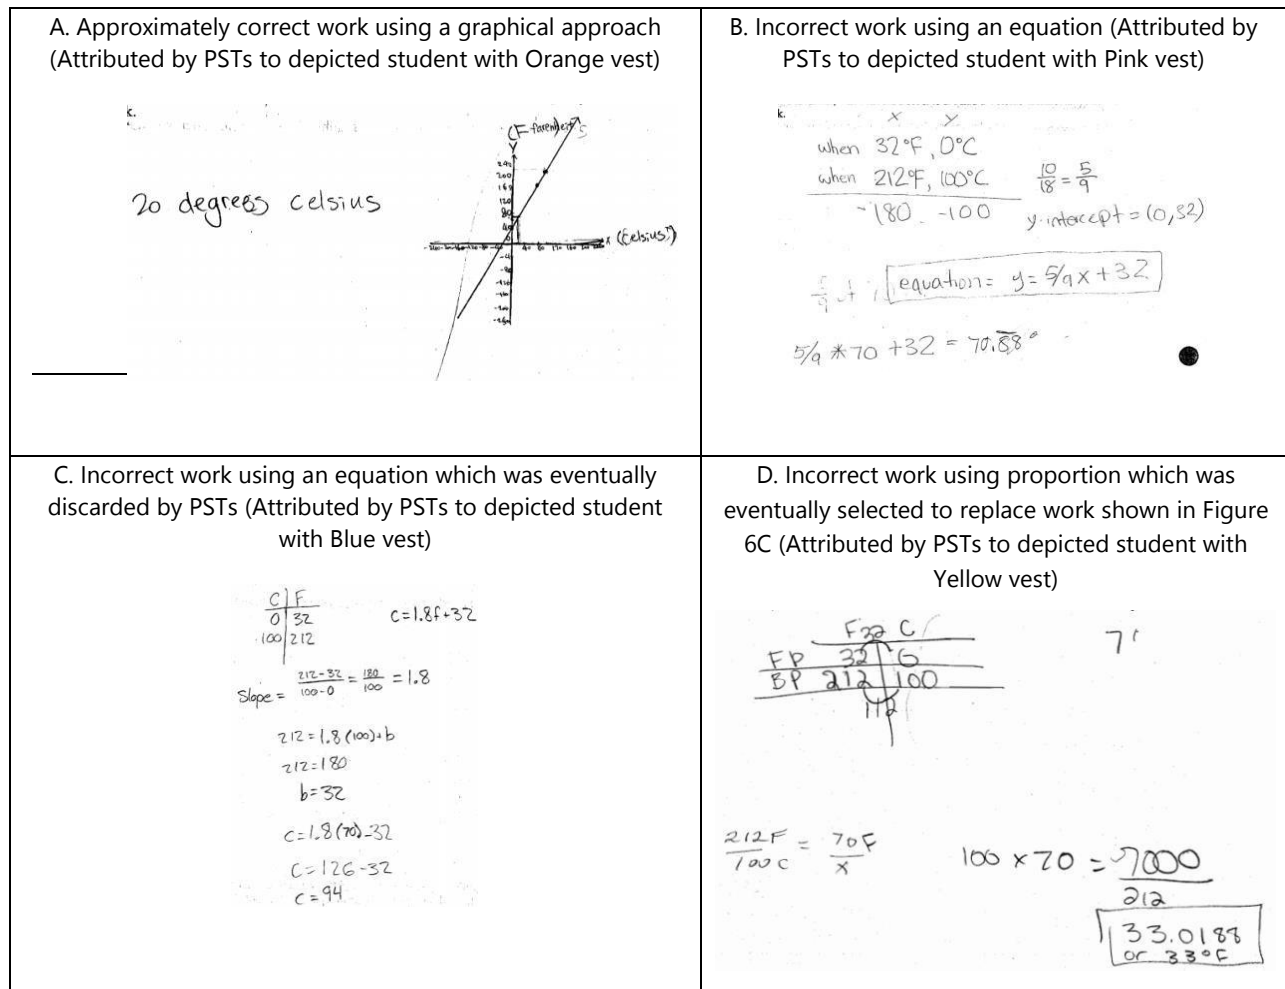 A. Approximately correct work using a graphical approach
(Attributed by PSTs to depicted student with Orange vest)
k.
20 degrees celsius
(Celsius°)
B. Incorrect work using an equation (Attributed by
PSTs to depicted student with Pink vest)
k.
x y
when 32°F, 0°C
when 212°F, 100°C
-180 -100
10/18 = 5/9
y-intercept = (0,32)
equation= y= 5/9x+32
5/9 *70 +32 = 70.88°
C. Incorrect work using an equation which was eventually
discarded by PSTs (Attributed by PSTs to depicted student
with Blue vest)
C F
0 32
100 212
C=1.8f+32
Slope = 212-32/100-0 = 180/100 = 1.8
212=1.8(100)+b
212=180
b=32
C=1.8(70)-32
C=126-32
C=94
D. Incorrect work using proportion which was
eventually selected to replace work shown in Figure
6C (Attributed by PSTs to depicted student with
Yellow vest)
F32 C
FP 32
BP 212 100
112
212F/100C = 70F/x
100 x 70 = 7000
212
33.0188
or 33°F